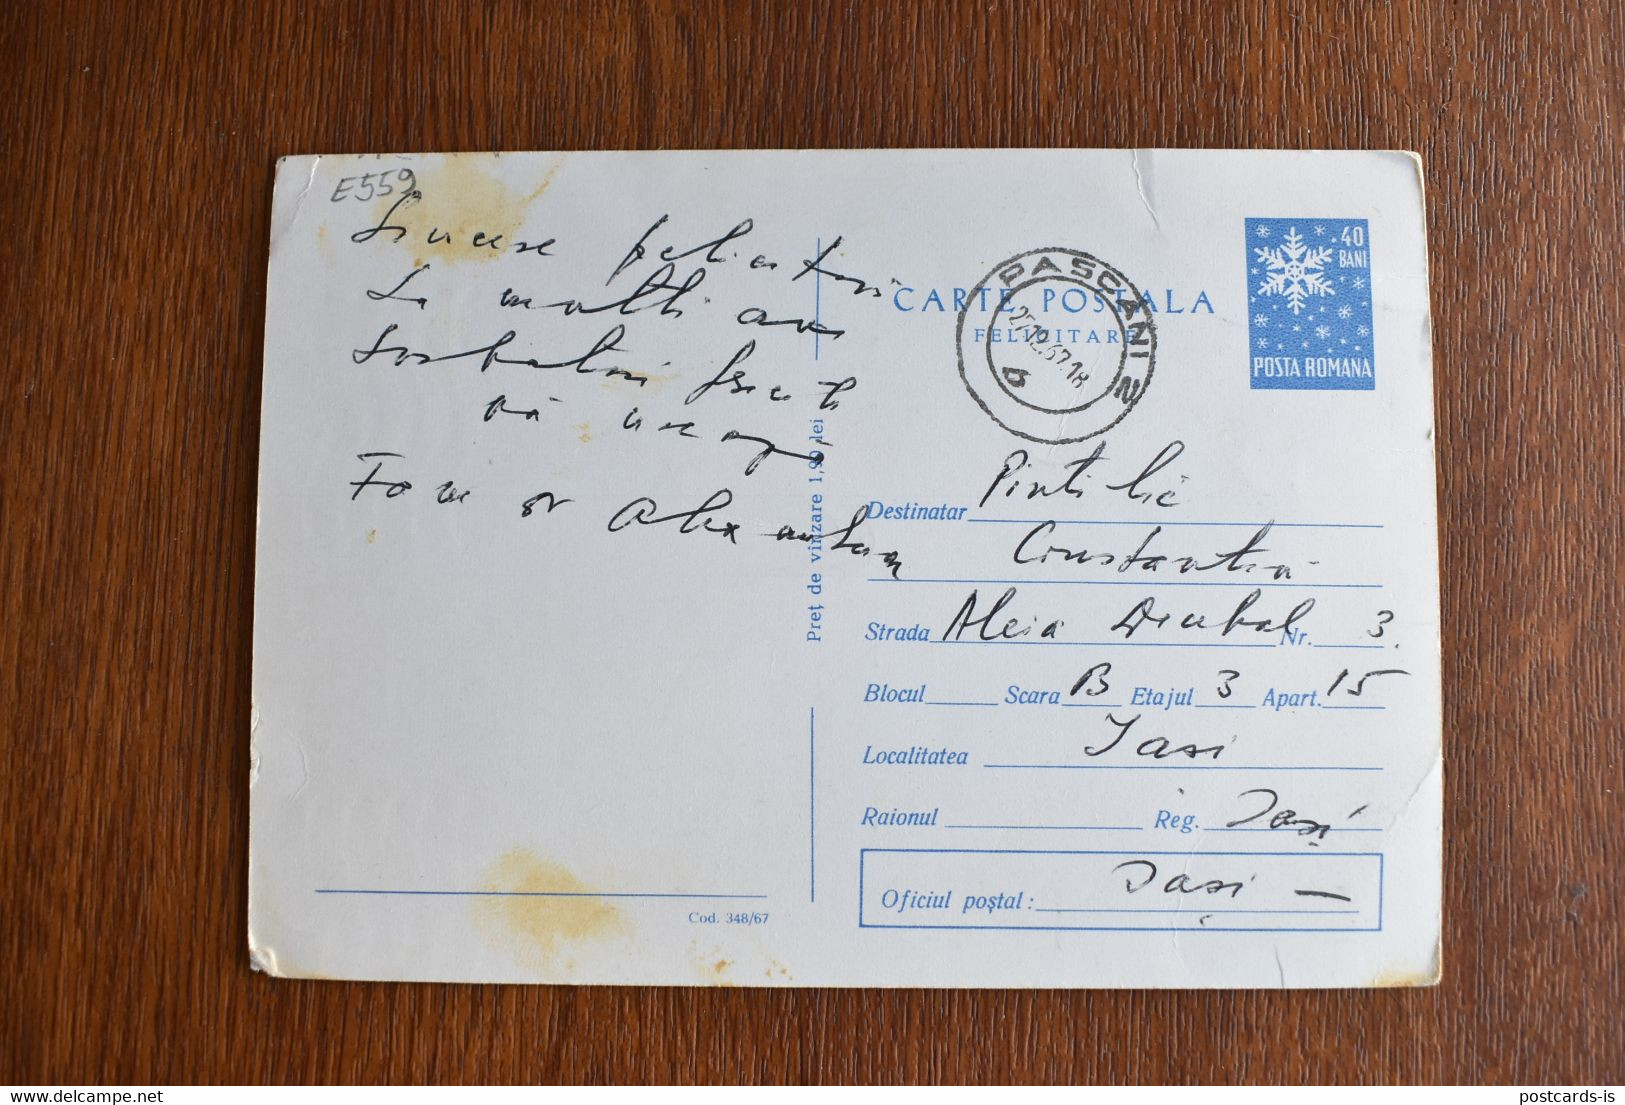 E559
Sincere felicitări
La multi ani
Sarbatori fericite
vă urează
Fam
CARTE POSTALA
FELICITARE
40
BANI
POSTA ROMANA
PASCANI 2
Preţ de vînzare 1,90 lei
Destinatar Pintilie
Constantin
Strada Aleia Decebal Nr. 3.
Blocul Scara B Etajul 3 Apart. 15
Localitatea Iasi
Raionul Reg. Iaşi
Oficiul poştal: Iaşi —
Cod. 348/67
delcampe.net
postcards-is